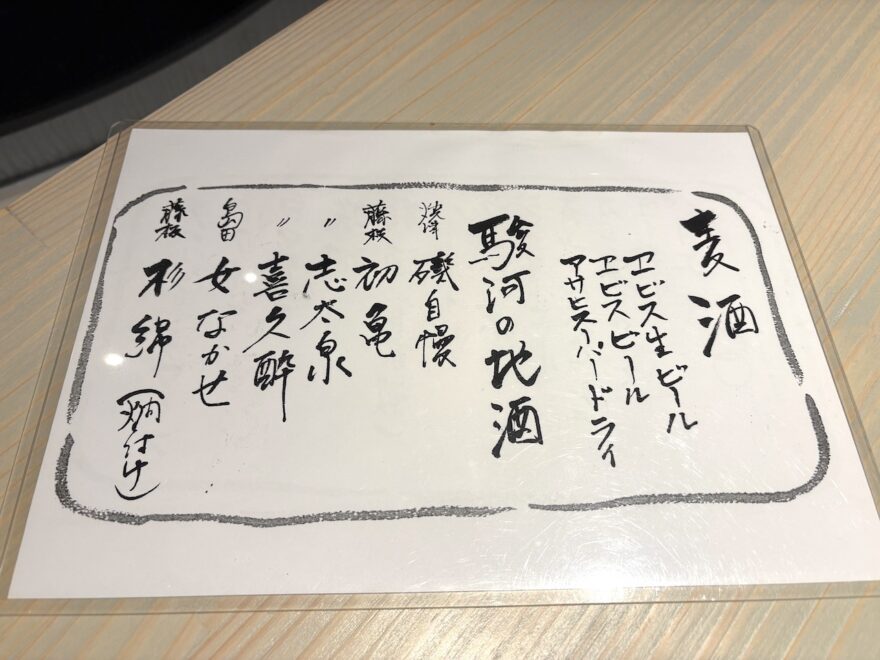 麦酒
ヱビス生ビール
ヱビスビール
アサヒスーパードライ
駿河の地酒
焼津 磯自慢
藤枝 初亀
〃 志太泉
〃 喜久酔
島田 女なかせ
藤枝 杉錦（燗付け）